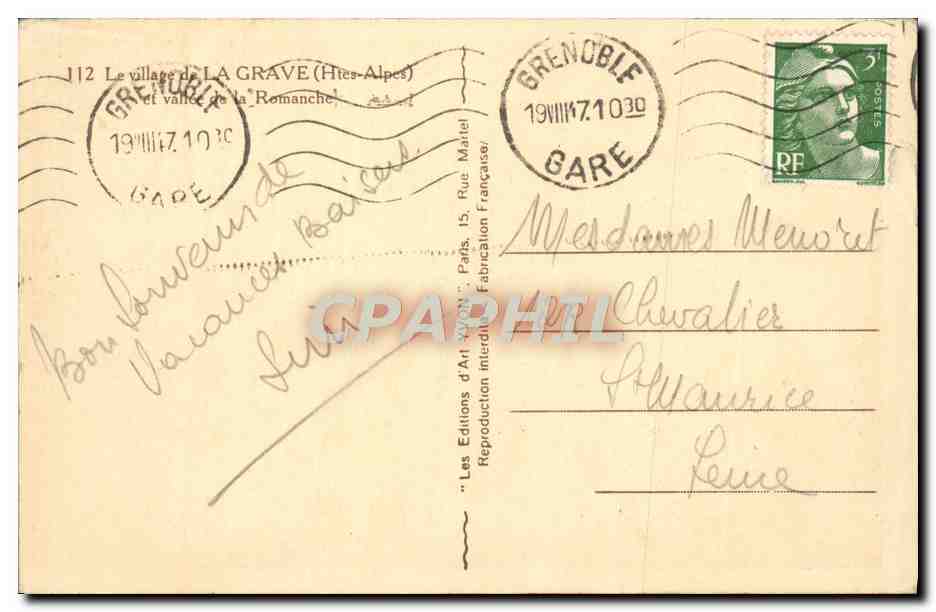 112 Le village de LA GRAVE (Htes-Alpes)
et vallée de la Romanche
GRENOBLE
19VIII47.10 30
GARE
Bon Souvenir de
Vacances Baisers
"Les Editions d'Art YVON", Paris, 15, Rue Martel
Reproduction interdite. Fabrication Française
GRENOBLE
19VIII47.10 30
GARE
3F
POSTES
RF
Mesdames Menoret
Chevalier
St Maurice
Seine
CPAPHIL